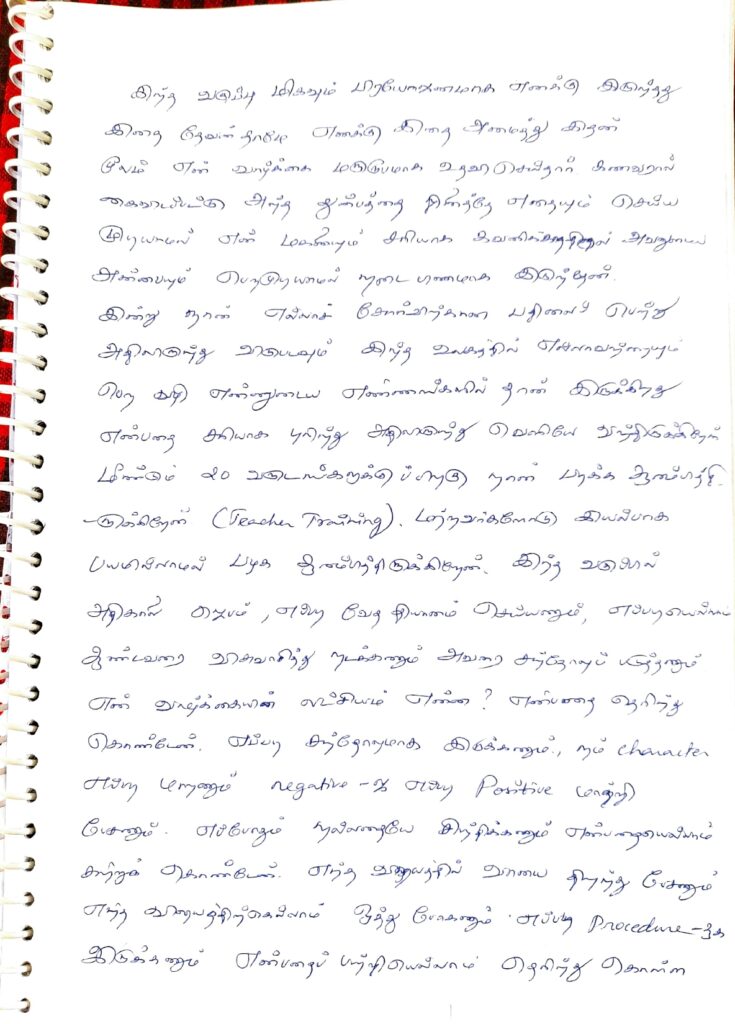 இந்த வகுப்பு மிகவும் பிரயோஜணமாக எனக்கு இருந்தது
இதை தேவன்தாமே எனக்கு இதை அமைத்து இதன்
மூலம் என் வாழ்க்கை மறுரூபமாக உதவி செய்தார். கணவரால்
கைவிடப்பட்டு அந்த துன்பத்தை நினைத்தே எதையும் செய்ய
முடியாமல் என் மகனையும் சரியாக கவனிக்காததினால் அவனுடைய
அன்பையும் பெறமுடியாமல் நடை பிணமாக இருந்தேன்.
இன்று நான் எல்லாச் சோர்விற்கான பதிலைப் பெற்று
அதிலிருந்து விடுபடவும் இந்த உலகத்தில் எல்லாவற்றையும்
பெற வழி என்னுடைய எண்ணங்களில் தான் இருக்கிறது
என்பதை சரியாக புரிந்து அதிலிருந்து வெளியே வந்திருக்கிறேன்
மீண்டும் 20 வருடங்களுக்குப்பிறகு நான் படிக்க ஆரம்பித்தி
-ருக்கிறேன் (Teacher Training). மற்றவர்களோடு இயல்பாக
பயமில்லாமல் பழக ஆரம்பித்திருக்கிறேன். இந்த வகுப்பில்
அதிகால ஜெபம், எப்படி வேத தியானம் செய்யணும், எப்படியெல்லாம்
ஆண்டவரை விசுவாசித்து நடக்கணும் அவரை சந்தோஷப் படுத்தணும்
என் வாழ்க்கையின் லட்சியம் என்ன? என்பதை தெரிந்து
கொண்டேன். எப்படி சந்தோஷமாக இருக்கணும், நம் character
எப்படி மாறணும் negative-ஐ எப்படி Positive மாற்றி
பேசணும். எப்போதும் நல்லதையே சிந்திக்கணும் என்பதையெல்லாம்
கற்றுக் கொண்டேன். எந்த விஷயத்தில் வாயை திறந்து பேசணும்
எந்த விஷயத்திற்கெல்லாம் ஒத்து போகணும். எப்படி Procedure-ஆக
இருக்கணும் என்பதைப் பற்றியெல்லாம் தெரிந்து கொள்ள